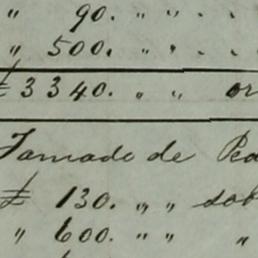 " 90. " " . .
" 500. " " . .
£ 3340. " " or
Tamado de Pea
£ 130. " " sob
" 600. " " "